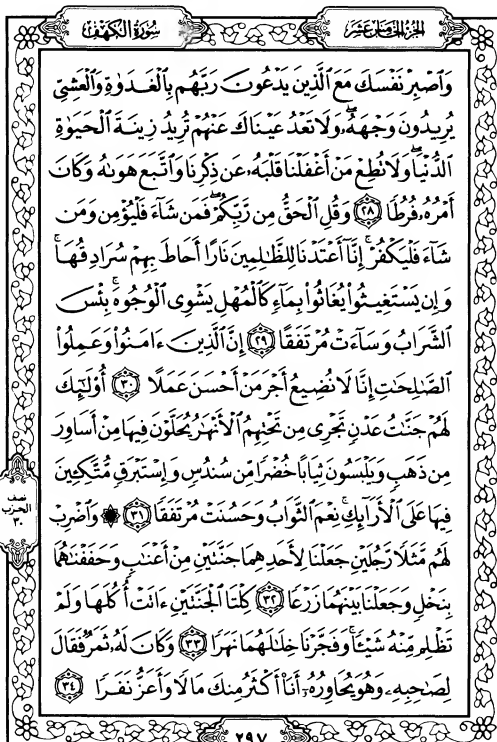 الجزء الخامس عشر
سورة الكهف
وَٱصْبِرْ نَفْسَكَ مَعَ ٱلَّذِينَ يَدْعُونَ رَبَّهُم بِٱلْغَدَوٰةِ وَٱلْعَشِىِّ
يُرِيدُونَ وَجْهَهُۥ ۖ وَلَا تَعْدُ عَيْنَاكَ عَنْهُمْ تُرِيدُ زِينَةَ ٱلْحَيَوٰةِ
ٱلدُّنْيَا ۖ وَلَا تُطِعْ مَنْ أَغْفَلْنَا قَلْبَهُۥ عَن ذِكْرِنَا وَٱتَّبَعَ هَوَىٰهُ وَكَانَ
أَمْرُهُۥ فُرُطًا ٢٨ وَقُلِ ٱلْحَقُّ مِن رَّبِّكُمْ ۖ فَمَن شَآءَ فَلْيُؤْمِن وَمَن
شَآءَ فَلْيَكْفُرْ ۚ إِنَّآ أَعْتَدْنَا لِلظَّـٰلِمِينَ نَارًا أَحَاطَ بِهِمْ سُرَادِقُهَا ۚ
وَإِن يَسْتَغِيثُوا۟ يُغَاثُوا۟ بِمَآءٍ كَٱلْمُهْلِ يَشْوِى ٱلْوُجُوهَ ۚ بِئْسَ
ٱلشَّرَابُ وَسَآءَتْ مُرْتَفَقًا ٢٩ إِنَّ ٱلَّذِينَ ءَامَنُوا۟ وَعَمِلُوا۟
ٱلصَّـٰلِحَـٰتِ إِنَّا لَا نُضِيعُ أَجْرَ مَنْ أَحْسَنَ عَمَلًا ٣٠ أُو۟لَـٰٓئِكَ
لَهُمْ جَنَّـٰتُ عَدْنٍ تَجْرِى مِن تَحْتِهِمُ ٱلْأَنْهَـٰرُ يُحَلَّوْنَ فِيهَا مِنْ أَسَاوِرَ
مِن ذَهَبٍ وَيَلْبَسُونَ ثِيَابًا خُضْرًا مِّن سُندُسٍ وَإِسْتَبْرَقٍ مُّتَّكِـِٔينَ
فِيهَا عَلَى ٱلْأَرَآئِكِ ۚ نِعْمَ ٱلثَّوَابُ وَحَسُنَتْ مُرْتَفَقًا ٣١ ۞ وَٱضْرِبْ
لَهُم مَّثَلًا رَّجُلَيْنِ جَعَلْنَا لِأَحَدِهِمَا جَنَّتَيْنِ مِنْ أَعْنَـٰبٍ وَحَفَفْنَـٰهُمَا
بِنَخْلٍ وَجَعَلْنَا بَيْنَهُمَا زَرْعًا ٣٢ كِلْتَا ٱلْجَنَّتَيْنِ ءَاتَتْ أُكُلَهَا وَلَمْ
تَظْلِم مِّنْهُ شَيْـًٔا ۚ وَفَجَّرْنَا خِلَـٰلَهُمَا نَهَرًا ٣٣ وَكَانَ لَهُۥ ثَمَرٌ فَقَالَ
لِصَـٰحِبِهِۦ وَهُوَ يُحَاوِرُهُۥٓ أَنَا۠ أَكْثَرُ مِنكَ مَالًا وَأَعَزُّ نَفَرًا ٣٤
نصف
الحزب
٣٠
٢٩٧